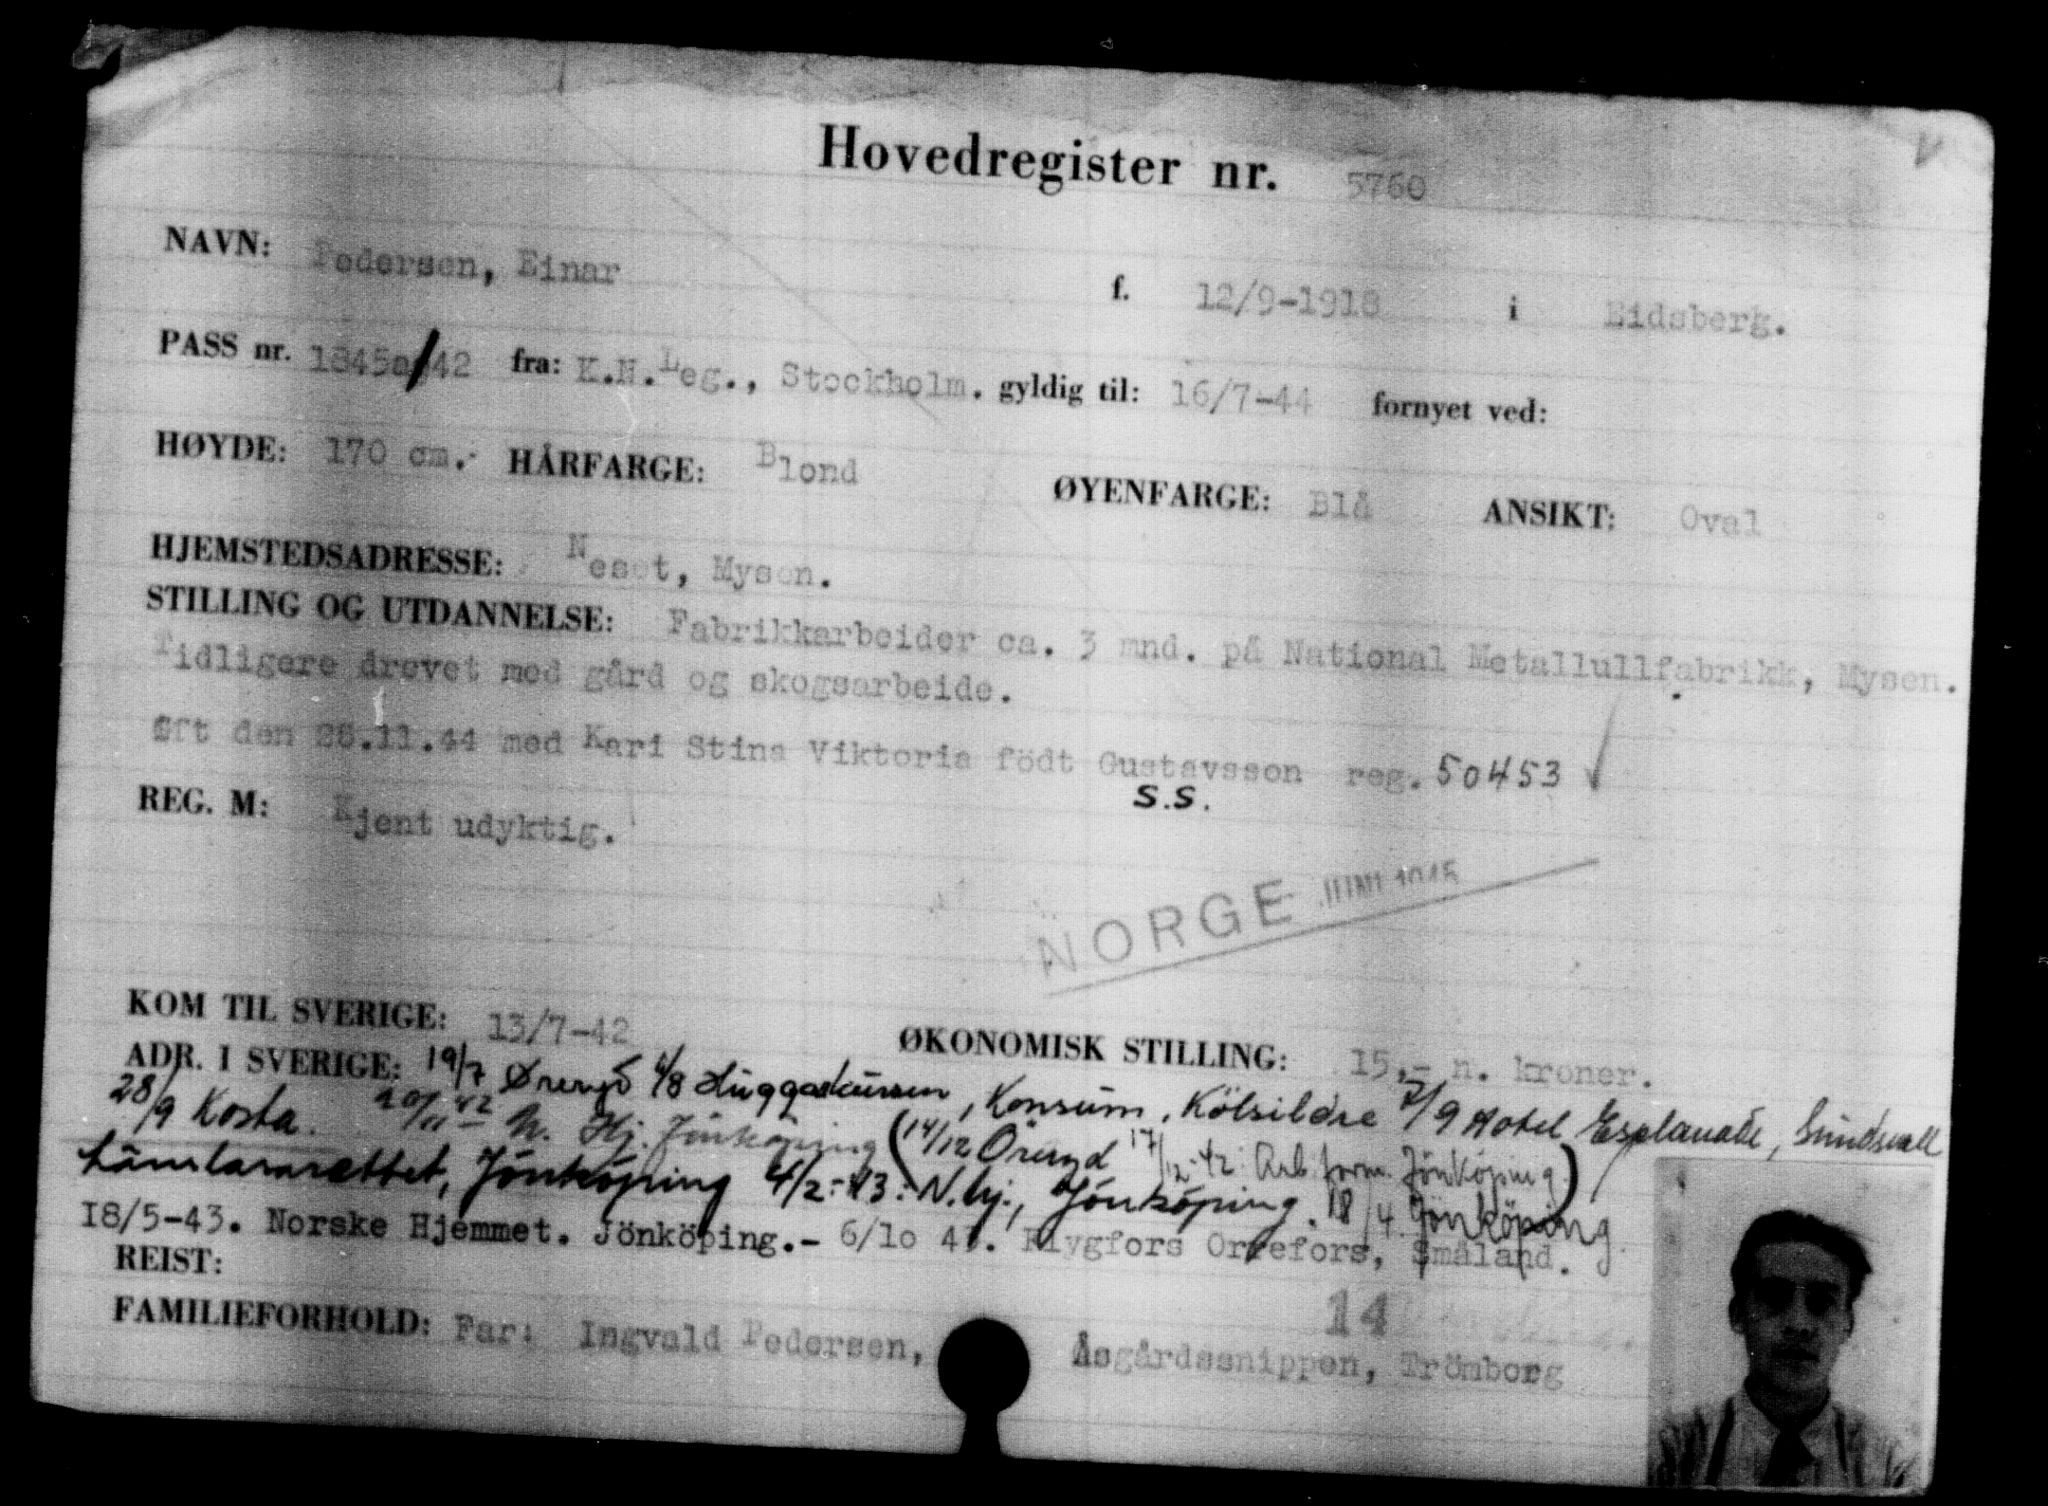 Hovedregister nr. 5760
NAVN: Pedersen, Einar f. 12/9-1918 i Eidsberg.
PASS nr. 1845a/42 fra: K.N.Leg., Stockholm. gyldig til: 16/7-44 fornyet ved:
HØYDE: 170 cm. HÅRFARGE: Blond ØYENFARGE: Blå ANSIKT: Oval
HJEMSTEDSADRESSE: Neset, Mysen.
STILLING OG UTDANNELSE: Fabrikkarbeider ca. 3 mnd. på National Metallullfabrikk, Mysen.
Tidligere drevet med gård og skogsarbeide.
Gft den 26.11.44 med Kari Stina Viktoria födt Gustavsson reg. 50453
S.S.
REG. M: Kjent udyktig.
NORGE JUNI 1945
KOM TIL SVERIGE: 13/7-42 ØKONOMISK STILLING: 15,- n. kroner.
ADR. I SVERIGE: 19/7 Öreryd 4/8 Huggarkursen, Konsum, Kölsildre 7/9 Hotel Esplanade, Sundsvall
28/9 Kosta. 20/11 42 N. Hj. Jönköping (14/12 Öreryd 17/12-42: Arb.form. Jönköping)
Länslasarettet, Jönköping 4/2-43: N.hj., Jönköping. 18/4. Jönköping.
18/5-43. Norske Hjemmet. Jönköping.- 6/10 4. Flygfors Orrefors, Småland.
REIST:
14
FAMILIEFORHOLD: Far: Ingvald Pedersen, Åsgårdssnippen, Trömborg